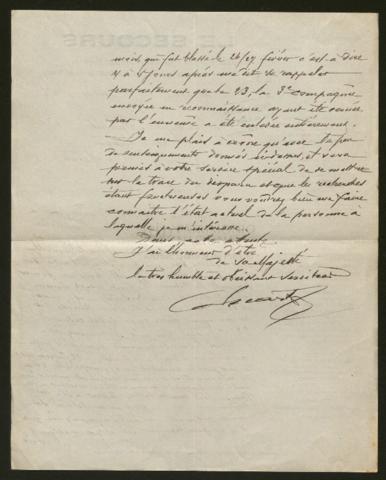 mois, qui fut blessé le 26/27 février c'est à dire
4 à 5 jours après me dit se rappeler
parfaitement que le 23, la 3e compagnie
envoyée en reconnaissance ayant été cernée
par l'ennemi a été enlevée entièrement.
Je me plais à croire qu'avec le peu
de renseignements donnés ci-dessus, il sera
permis à votre service spécial de se mettre
sur la trace du disparu et que les recherches
étant fructueuses vous voudrez bien me faire
connaître l'état actuel de la personne à
laquelle je m'intéresse.
Dans cette attente
J'ai l'honneur d'être
de Sa Majesté
le très humble et obéissant serviteur